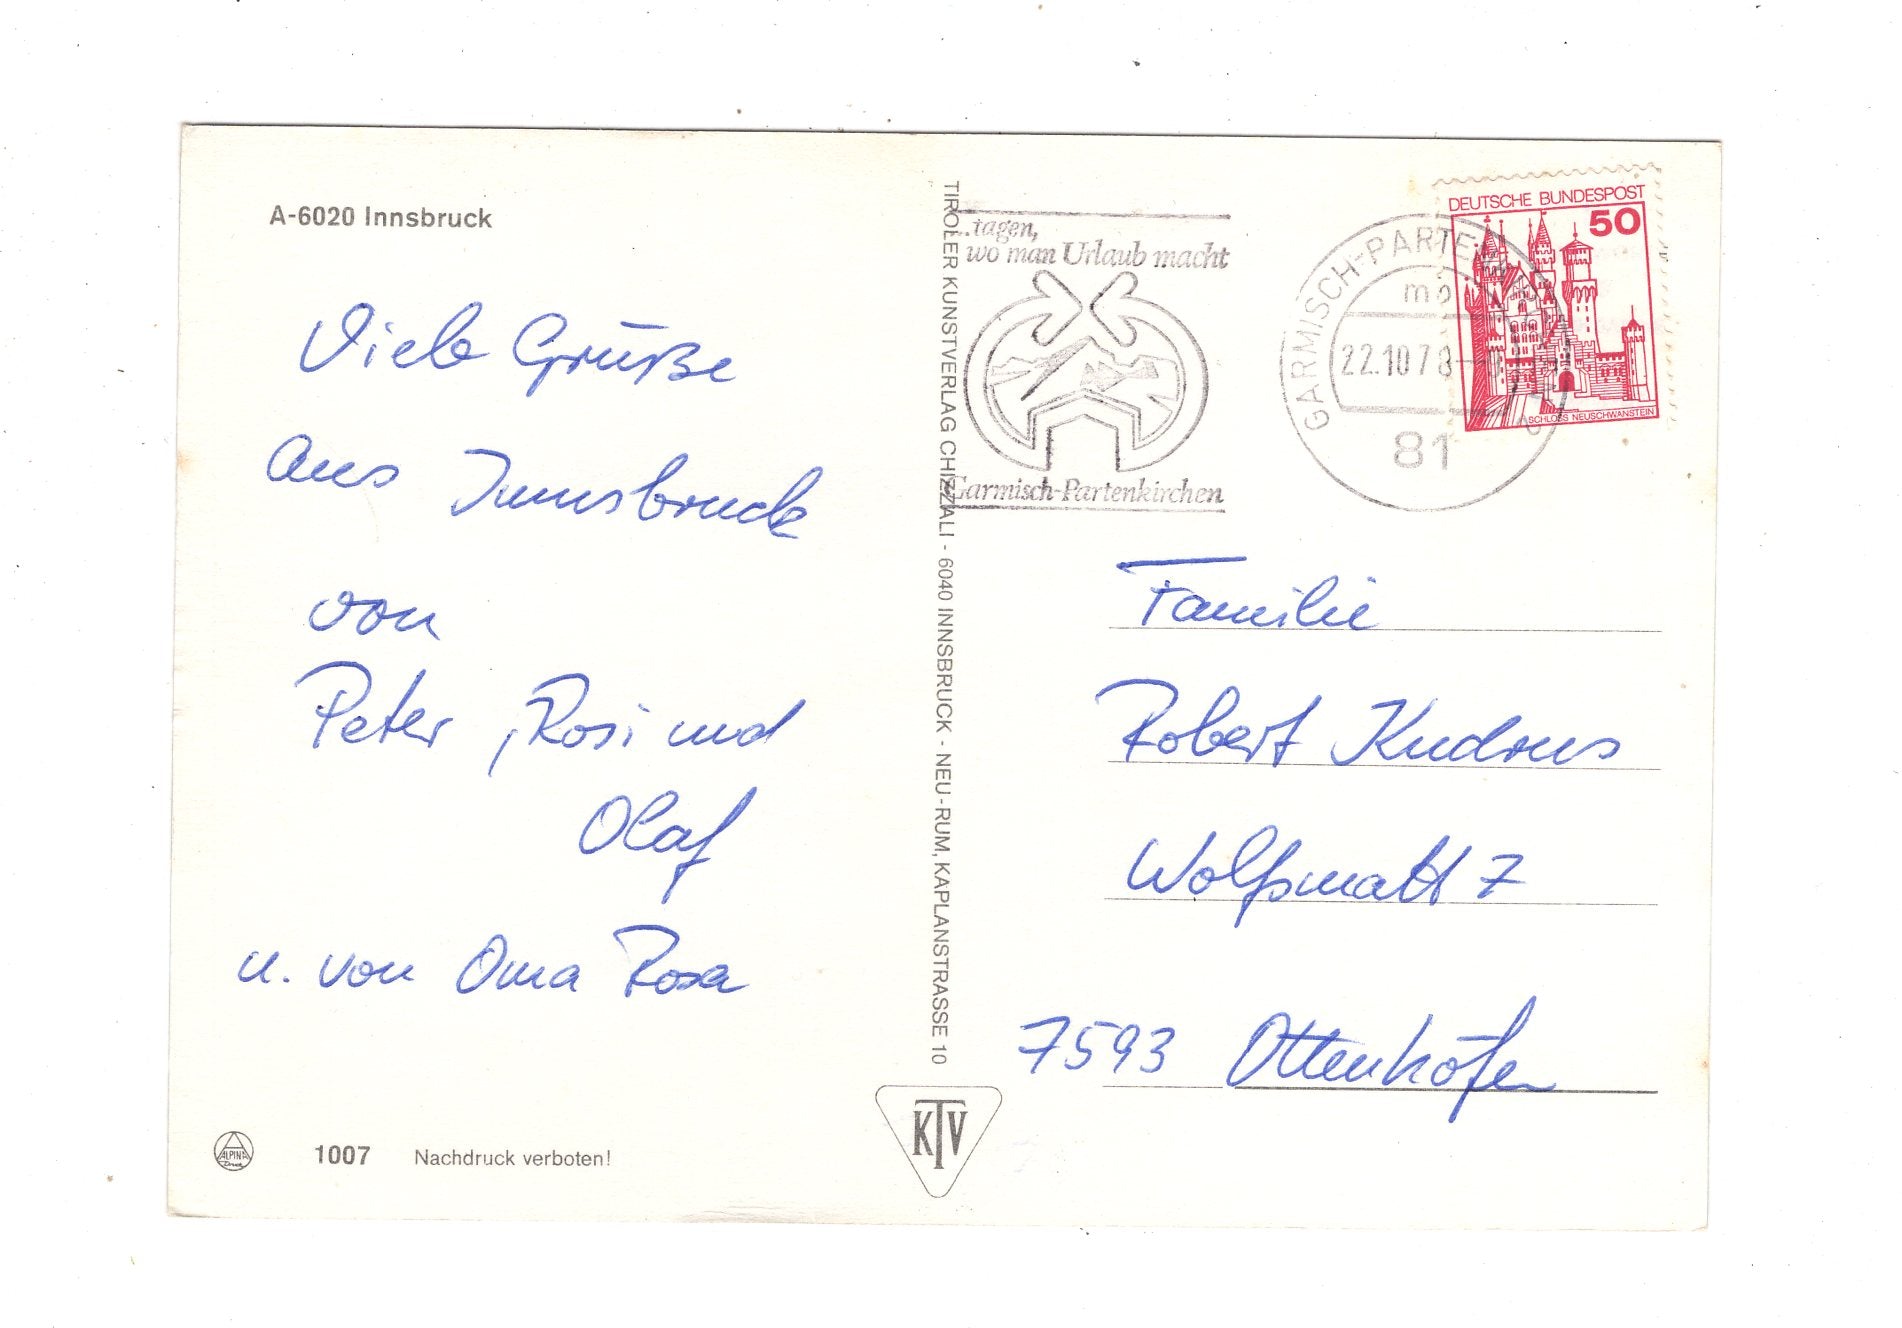 A-6020 Innsbruck
Viele Grüße
aus Innsbruck
von
Peter, Rosi und
Olaf
u. von Oma Rosa
1007 Nachdruck verboten!
ALPINA
Druck
TIROLER KUNSTVERLAG CHIZZALI - 6040 INNSBRUCK - NEU-RUM, KAPLANSTRASSE 10
KTV
...tagen,
wo man Urlaub macht
Garmisch-Partenkirchen
GARMISCH-PARTENKIRCHEN
22.10.78
81
DEUTSCHE BUNDESPOST
50
SCHLOSS NEUSCHWANSTEIN
Familie
Robert
Wolfsmatt 7
7593 Ottenhöfen